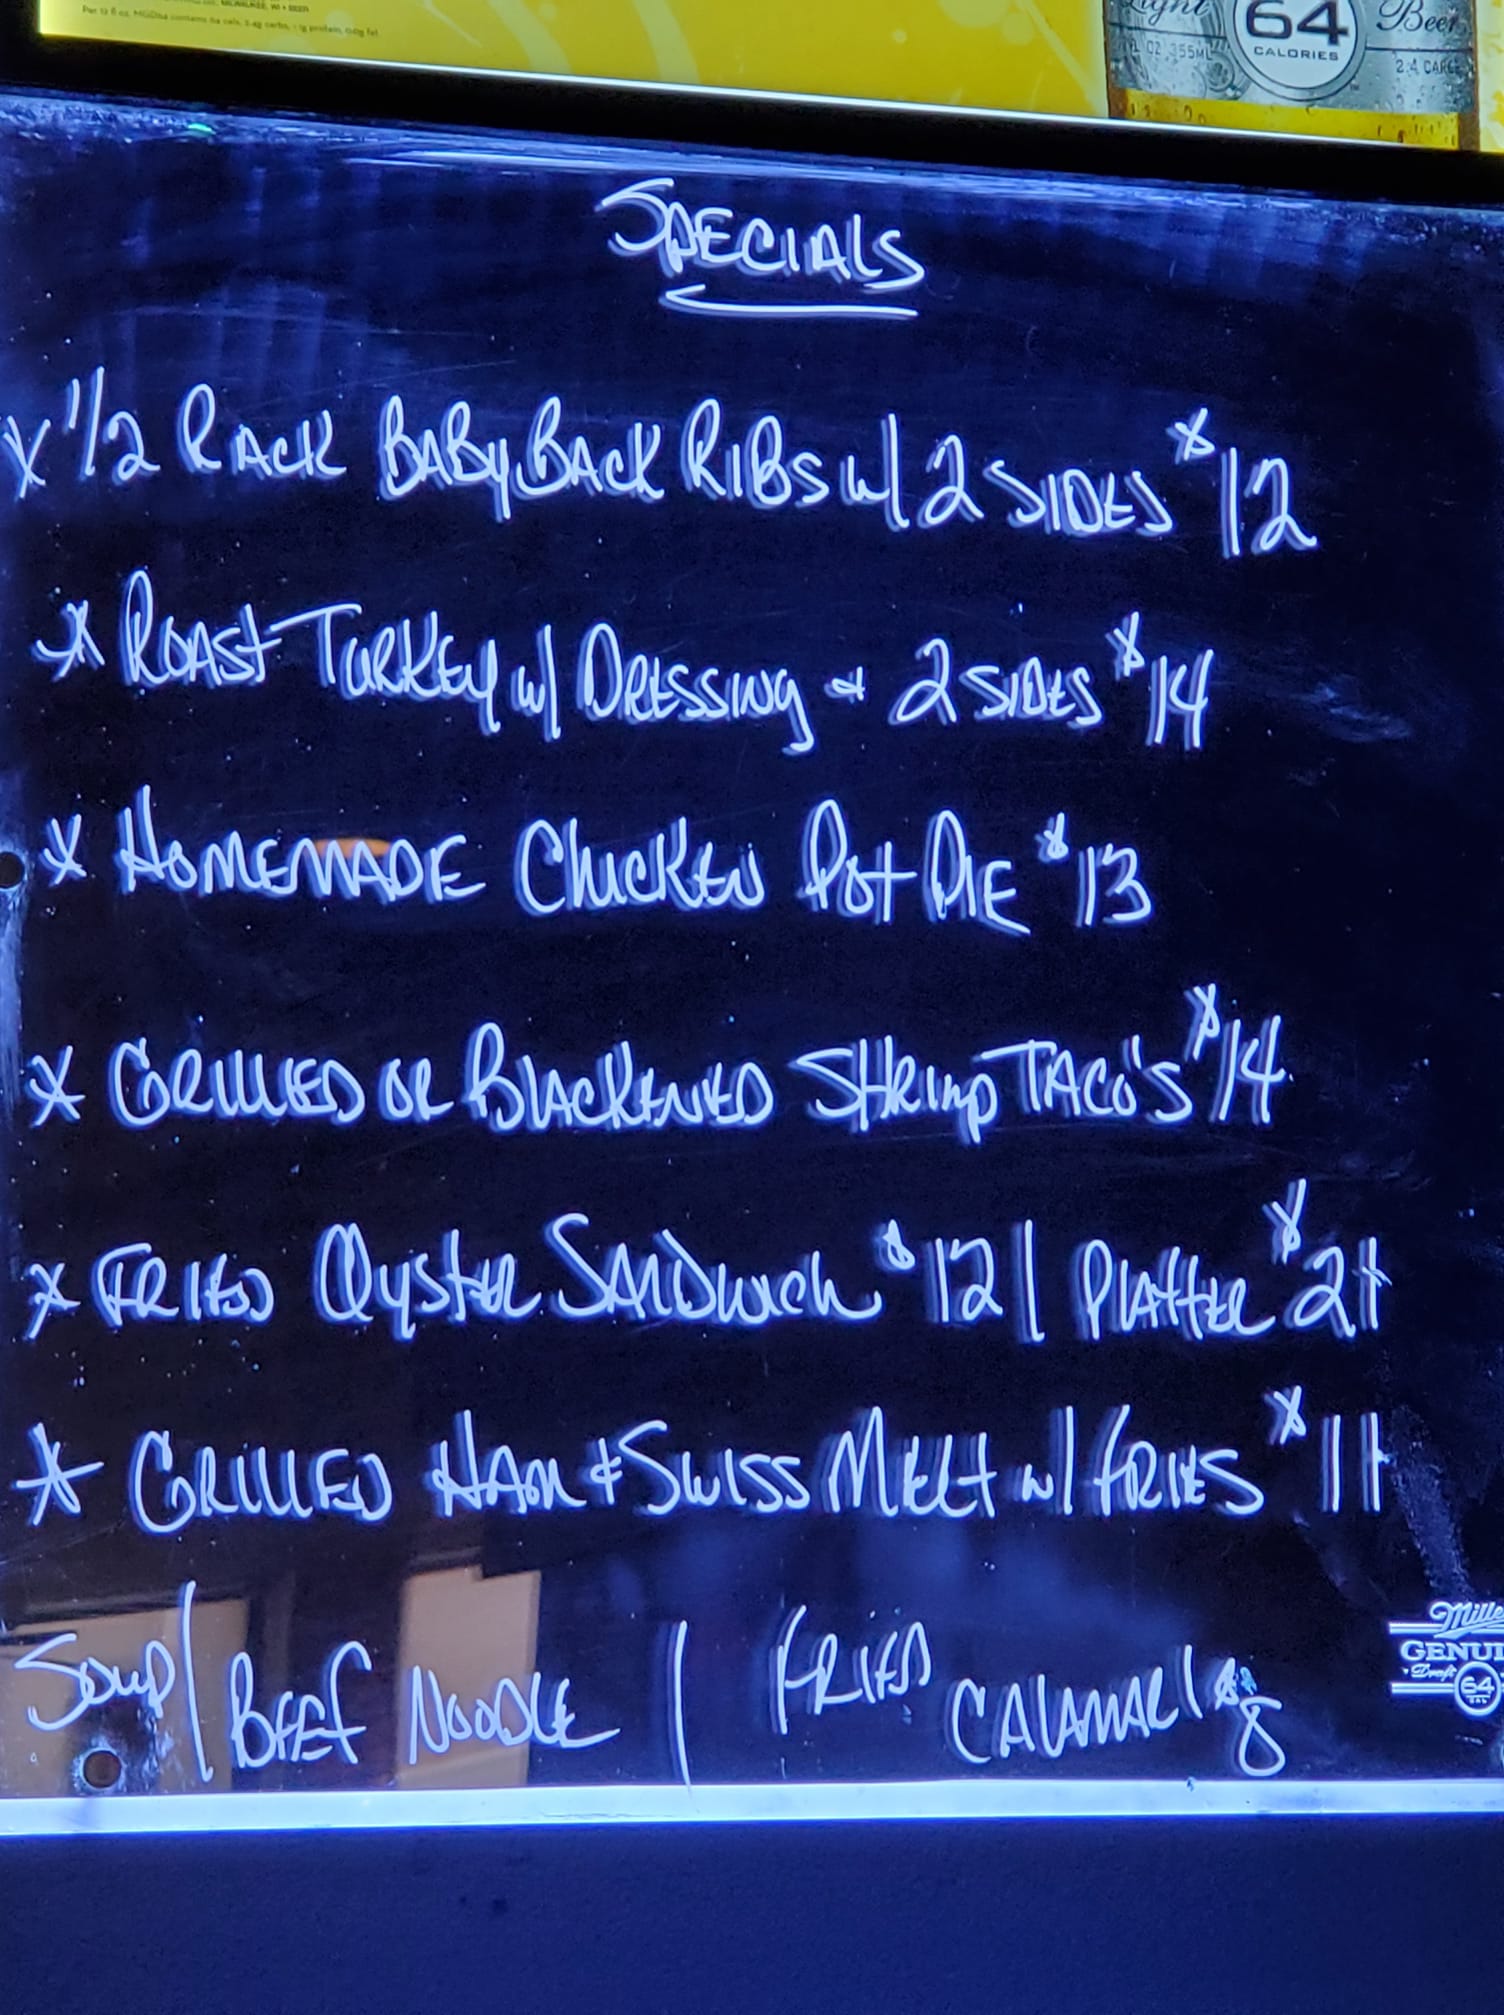 MILWAUKEE, WI • BEER
Per 12 fl oz. MGD64 contains 64 cals, 2.4g carbs, <1g protein, 0.0g fat
Light 64 Beer
CALORIES
FL OZ 355ML
2.4 CARBS
SPECIALS
* 1/2 RACK BABY BACK RIBS w/ 2 SIDES $12
* ROAST TURKEY w/ DRESSING & 2 SIDES $14
* HOMEMADE CHICKEN POT PIE $13
* GRILLED OR BLACKENED SHRIMP TACO'S $14
* FRIED OYSTER SANDWICH $12 / PLATTER $21
* GRILLED HAM & SWISS MELT w/ FRIES $11
SOUP / BEEF NOODLE / FRIED CALAMARI $8
Mille
GENUI
Draft
64